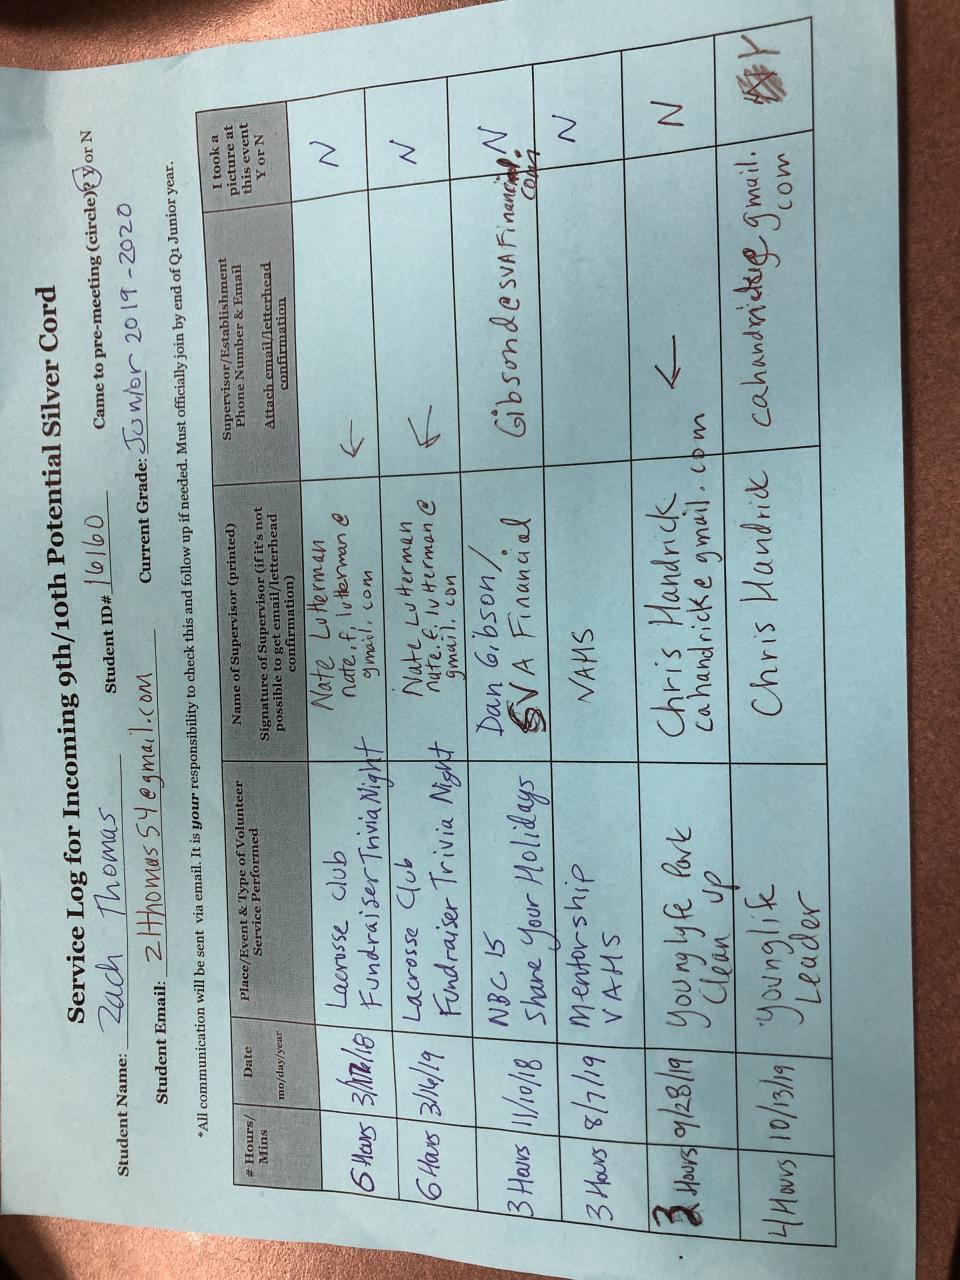 Service Log for Incoming 9th/10th Potential Silver Cord
Student Name: Zach Thomas Student ID# 16160 Came to pre-meeting (circle)? Y or N
Student Email: 21thomas54@gmail.com Current Grade: Junior 2019-2020
*All communication will be sent via email. It is your responsibility to check this and follow up if needed. Must officially join by end of Q1 Junior year.
# Hours/
Mins
Date
mo/day/year
Place/Event & Type of Volunteer
Service Performed
Name of Supervisor (printed)
Signature of Supervisor (if it's not
possible to get email/letterhead
confirmation)
Supervisor/Establishment
Phone Number & Email
Attach email/letterhead
confirmation
I took a
picture at
this event
Y or N
Hours
Lacrosse Club
Fundraiser Trivia Night
Nate Luterman
nate.f.luterman@
gmail.com
←
N
6 Hours 3/16/19
Lacrosse Club
Fundraiser Trivia Night
Nate Luterman
nate.f.luterman@
gmail.com
←
N
3 Hours 11/10/18
NBC 15
Share Your Holidays
Dan Gibson/
SVA Financial
Gibsond@SVAFinancial.
com
N
3 Hours 8/7/19
Mentorship
VAHS
VAHS
N
3 Hours 9/28/19
Young lyfe Park
Clean up
Chris Handrick
cahandrick@gmail.com
←
N
4 Hours 10/13/19
Younglife
Leader
Chris Handrick
cahandrick@gmail.
com
Y